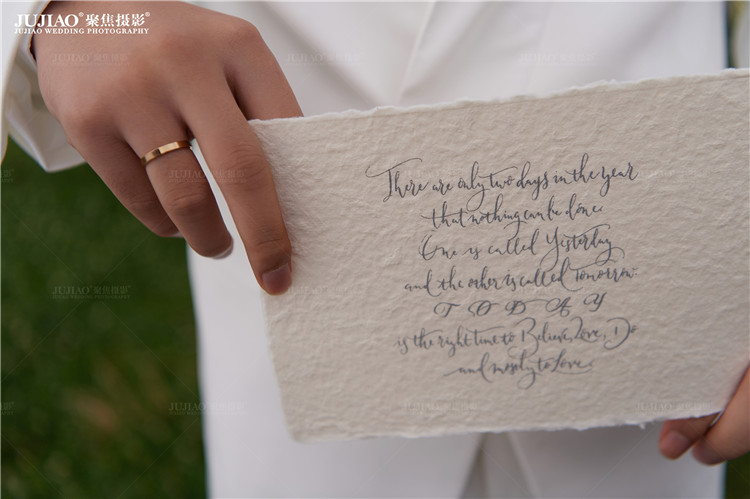 JUJIAO® 聚焦摄影®
JUJIAO WEDDING PHOTOGRAPHY
There are only two days in the year
that nothing can be done.
One is called Yesterday
and the other is called Tomorrow.
TODAY
is the right time to Believe, Love, Do
and mosely to Love.